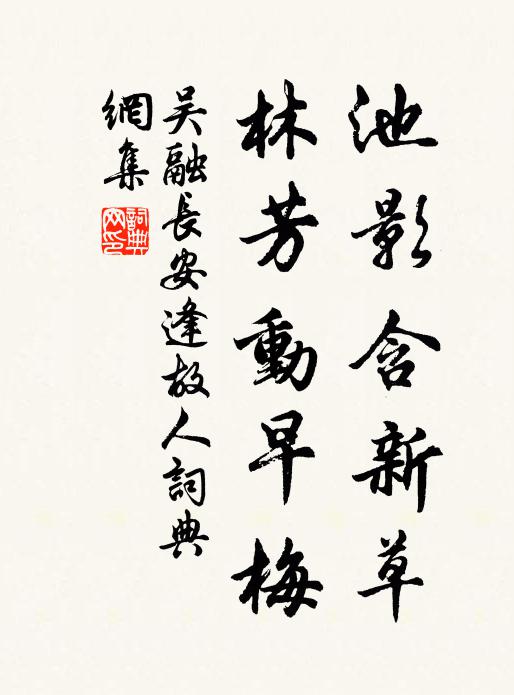 池影含新草
林芳動早梅
吳融長安逢故人詞典
網集
詞典網印